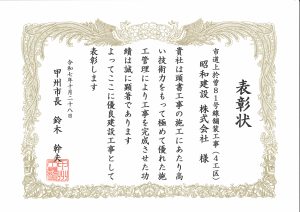 表彰状
市道上於曽81号線舗装工事(4工区)
昭和建設 株式会社 様
貴社は頭書工事の施工にあたり高
い技術力をもって極めて優れた施
工管理により工事を完成させた功
績は誠に顕著であります
よってここに優良建設工事として
表彰します
令和七年十月二十八日
甲州市長 鈴木 幹夫